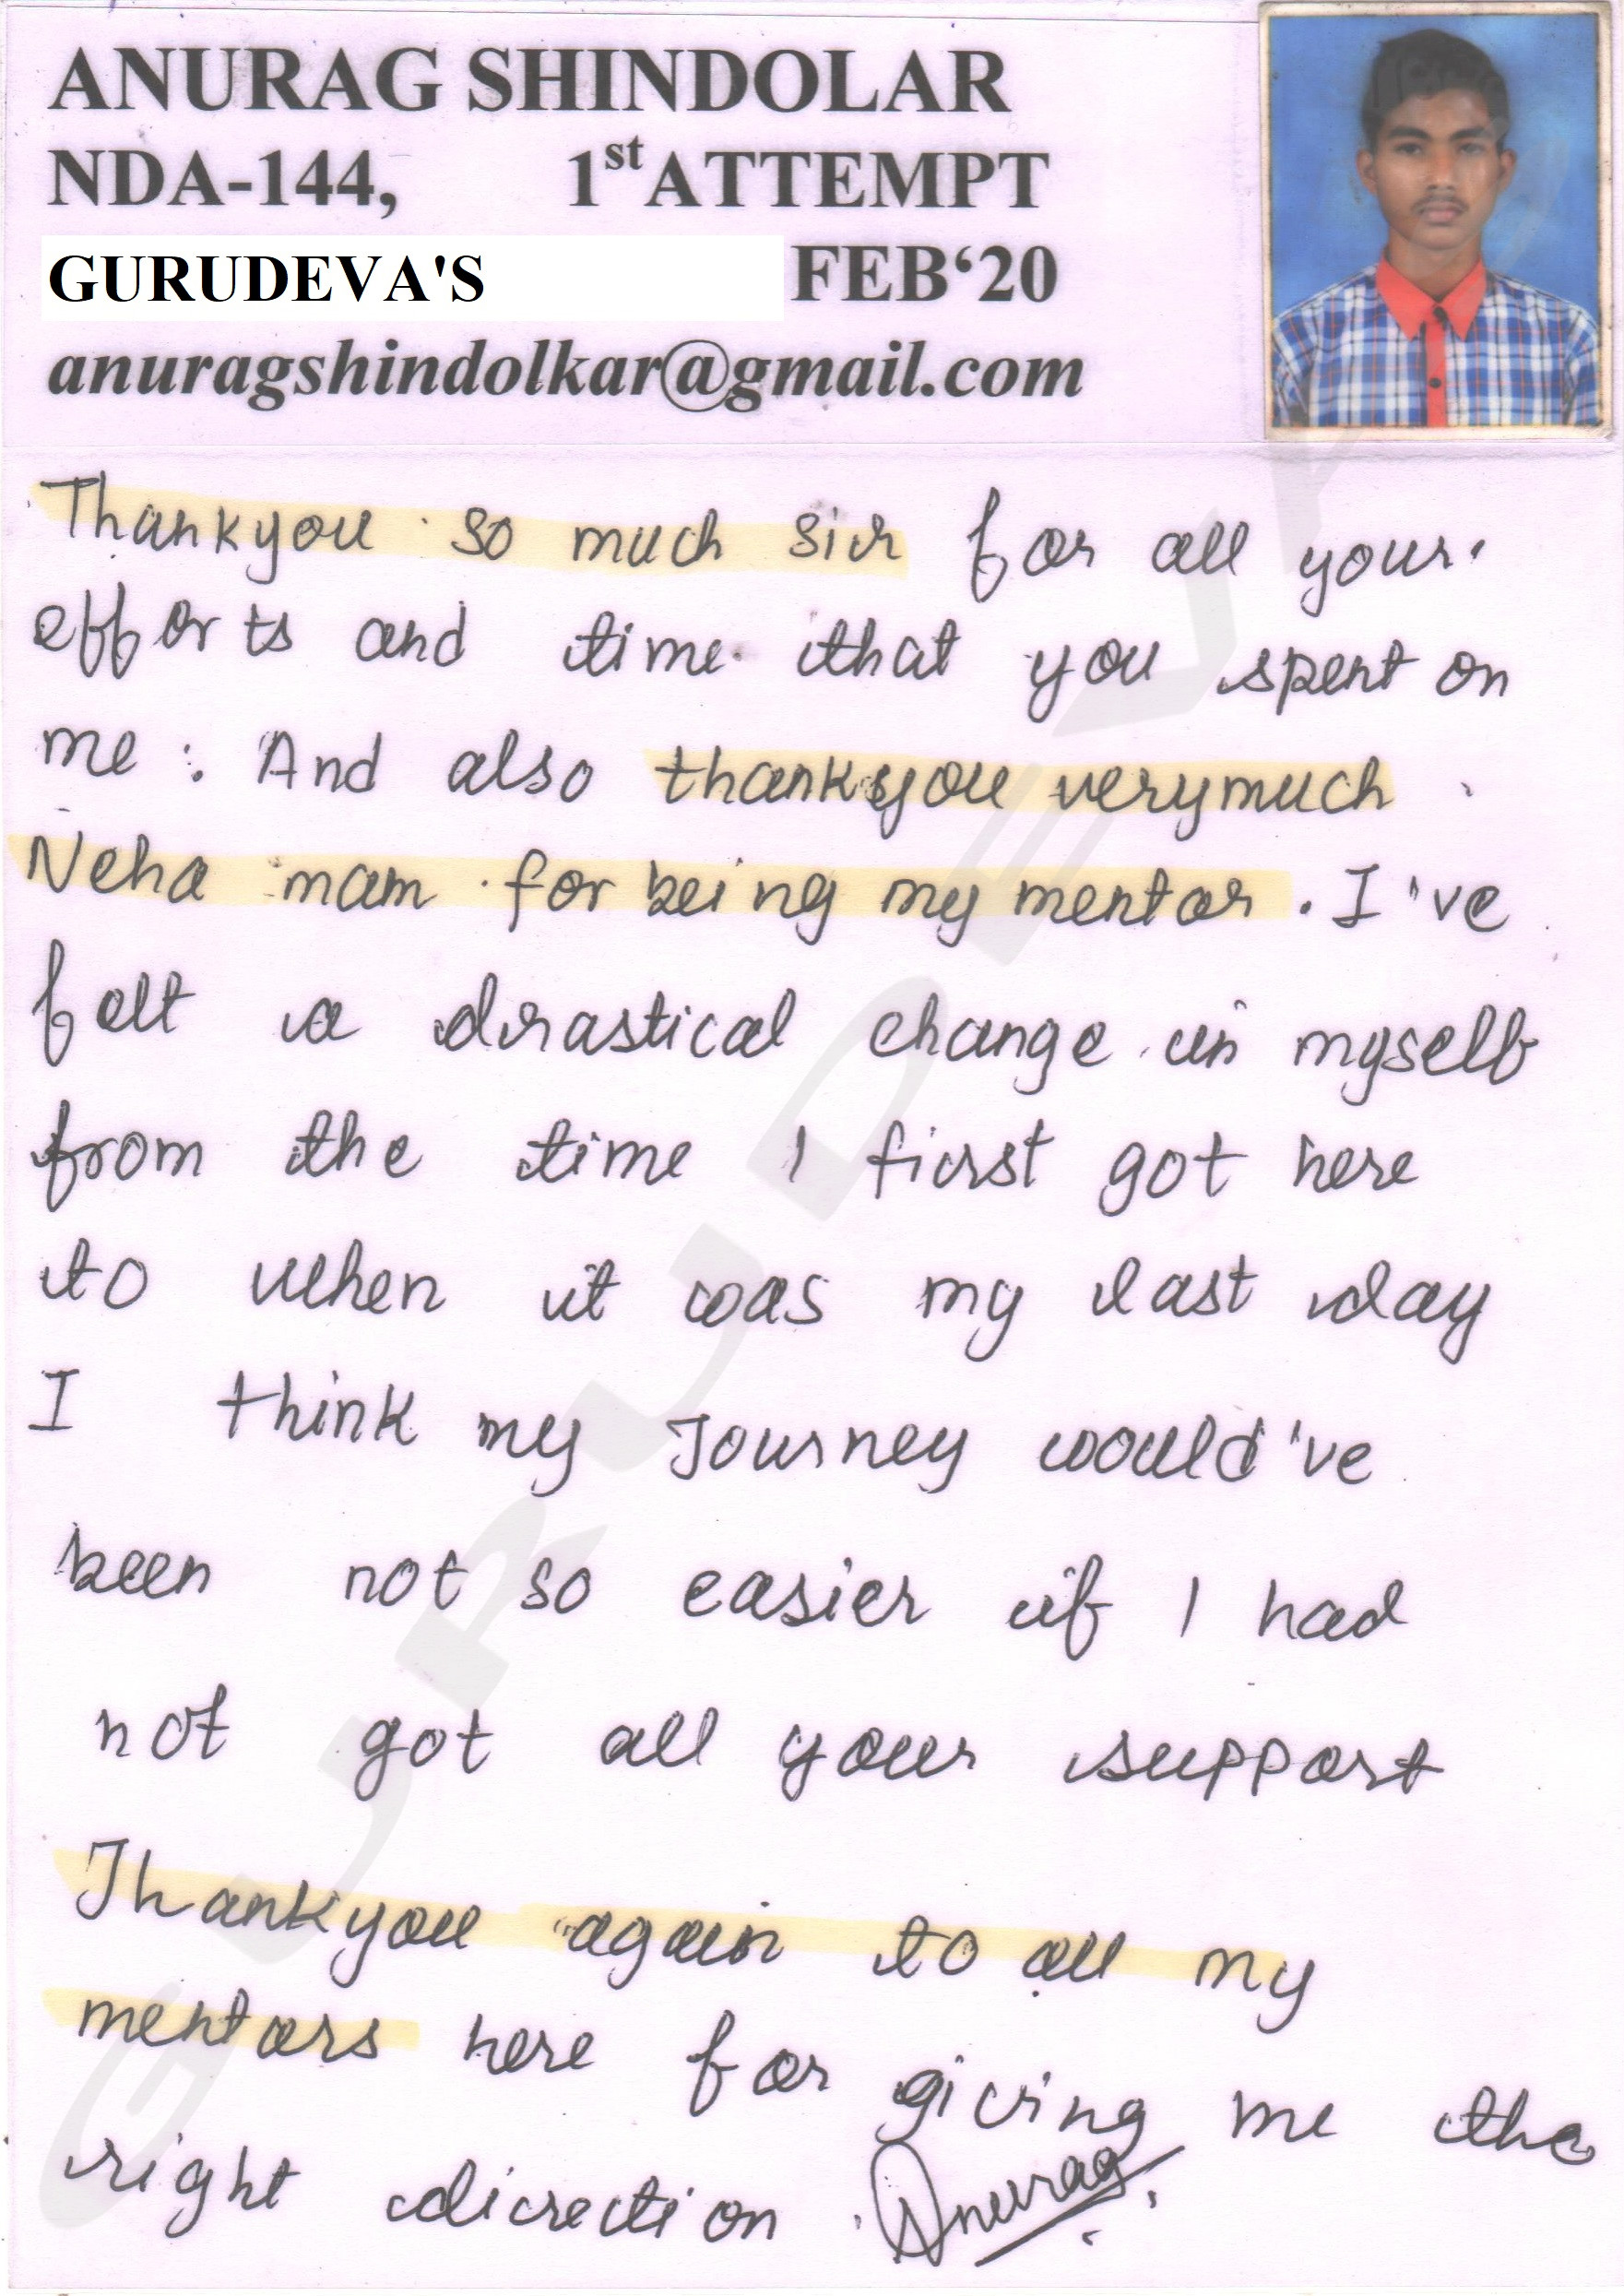 ANURAG SHINDOLAR
NDA-144, 1st ATTEMPT
GURUDEVA'S FEB‘20
anuragshindolkar@gmail.com
Thankyou so much sir for all your
efforts and time that you spent on
me. And also thankyou verymuch
Neha mam for being my mentor. I've
felt a drastical change in myself
from the time I first got here
to when it was my last day
I think my Journey would've
been not so easier if I had
not got all your support
Thankyou again to all my
mentors here for giving me the
right direction. Anurag
GURUDEVA